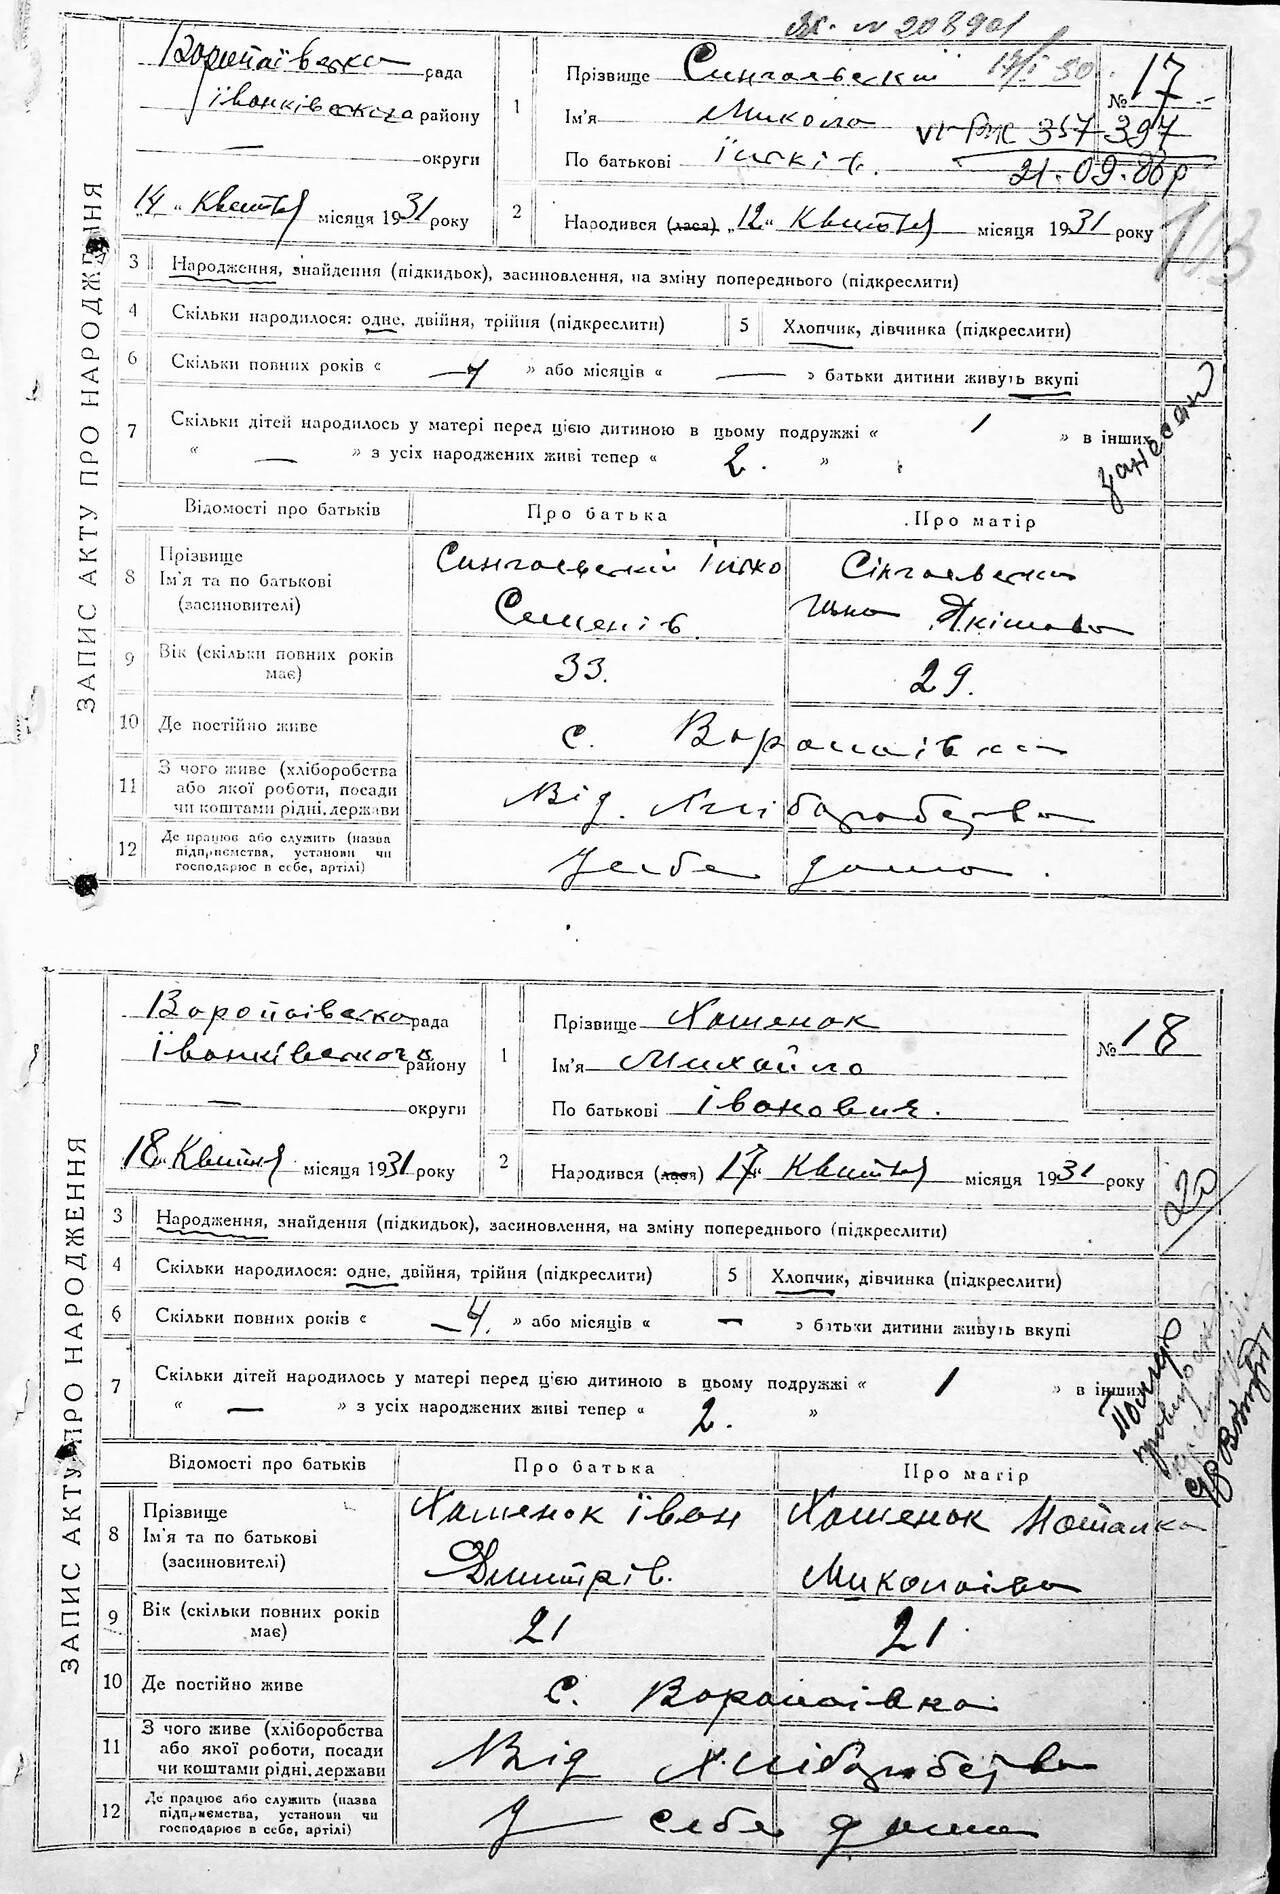 № 20890
Воропаївська рада
Іванківського району
— округи
14 „ Квітня місяця 1931 року
1
Прізвище Сингаєвский
Ім'я Микола
По батькові
№ 17
VI-БК 357397
21.09.88р
2
Народився (лася) „12“ Квітня місяця 1931 року
103
ЗАПИС АКТУ ПРО НАРОДЖЕННЯ
3 Народження, знайдення (підкидьок), засиновлення, на зміну попереднього (підкреслити)
4 Скільки народилося: одне, двійня, трійня (підкреслити)
5 Хлопчик, дівчинка (підкреслити)
6 Скільки повних років « 4 » або місяців « — » батьки дитини живуть вкупі
7 Скільки дітей народилось у матері перед цією дитиною в цьому подружжі « 1 » в інших
« — » з усіх народжених живі тепер « 2. »
занесен
Відомості про батьків
Про батька
Про матір
8 Прізвище
Ім'я та по батькові
(засиновителі)
Сингаєвский
Семенів
Сінгаєвська
Якімова
9 Вік (скільки повних років має)
33.
29.
10 Де постійно живе
с. Воропаївка
11 З чого живе (хліборобства
або якої роботи, посади
чи коштами рідні, держави
Від Хліборобства
12 Де працює або служить (назва
підприємства, установи чи
господарює в себе, артілі)
У себе дома.
Воропаївська рада
Іванківського району
— округи
18 „ Квітня місяця 1931 року
1
Прізвище Хоменок
Ім'я Михайло
По батькові Іванович.
№ 18
2
Народився (лася) 17“ Квітня місяця 1931 року
20
ЗАПИС АКТУ ПРО НАРОДЖЕННЯ
3 Народження, знайдення (підкидьок), засиновлення, на зміну попереднього (підкреслити)
4 Скільки народилося: одне, двійня, трійня (підкреслити)
5 Хлопчик, дівчинка (підкреслити)
6 Скільки повних років « 4. » або місяців « — » батьки дитини живуть вкупі
7 Скільки дітей народилось у матері перед цією дитиною в цьому подружжі « 1 » в інших
« — » з усіх народжених живі тепер « 2. »
Відомості про батьків
Про батька
Про матір
8 Прізвище
Ім'я та по батькові
(засиновителі)
Хоменок Іван
Дмитрів.
Хоменок Наталка
Миколаівна
9 Вік (скільки повних років має)
21
21
10 Де постійно живе
с. Воропаівка
11 З чого живе (хліборобства
або якої роботи, посади
чи коштами рідні, держави
Від Хліборобства
12 Де працює або служить (назва
підприємства, установи чи
господарює в себе, артілі)
У себе дома